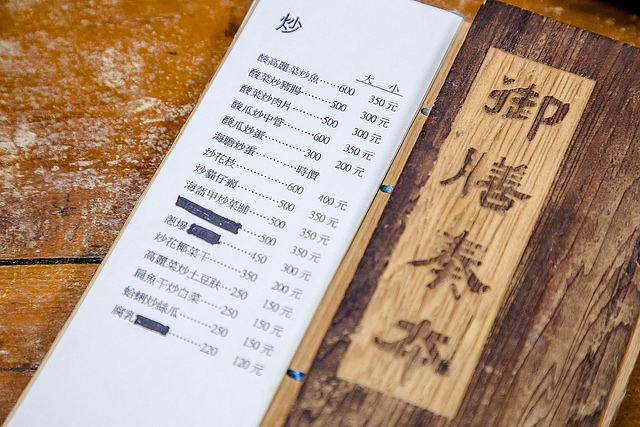 炒
大 小
酸高麗菜炒魚……600 350元
酸菜炒豬腸……500 300元
酸菜炒肉片……500 300元
酸瓜炒中管……600 350元
酸瓜炒蛋……300 200元
海膽炒蛋……時價
炒花枝……600 400元
炒貓仔……500 350元
海盔甲炒菜脯……500 350元
……500 350元
蔥爆……450 300元
炒花椰菜干……350 200元
高麗菜炒土豆……250 150元
扁魚干炒白菜……250 150元
蛤蜊炒絲瓜……250 150元
腐乳……220 120元
御膳奏本